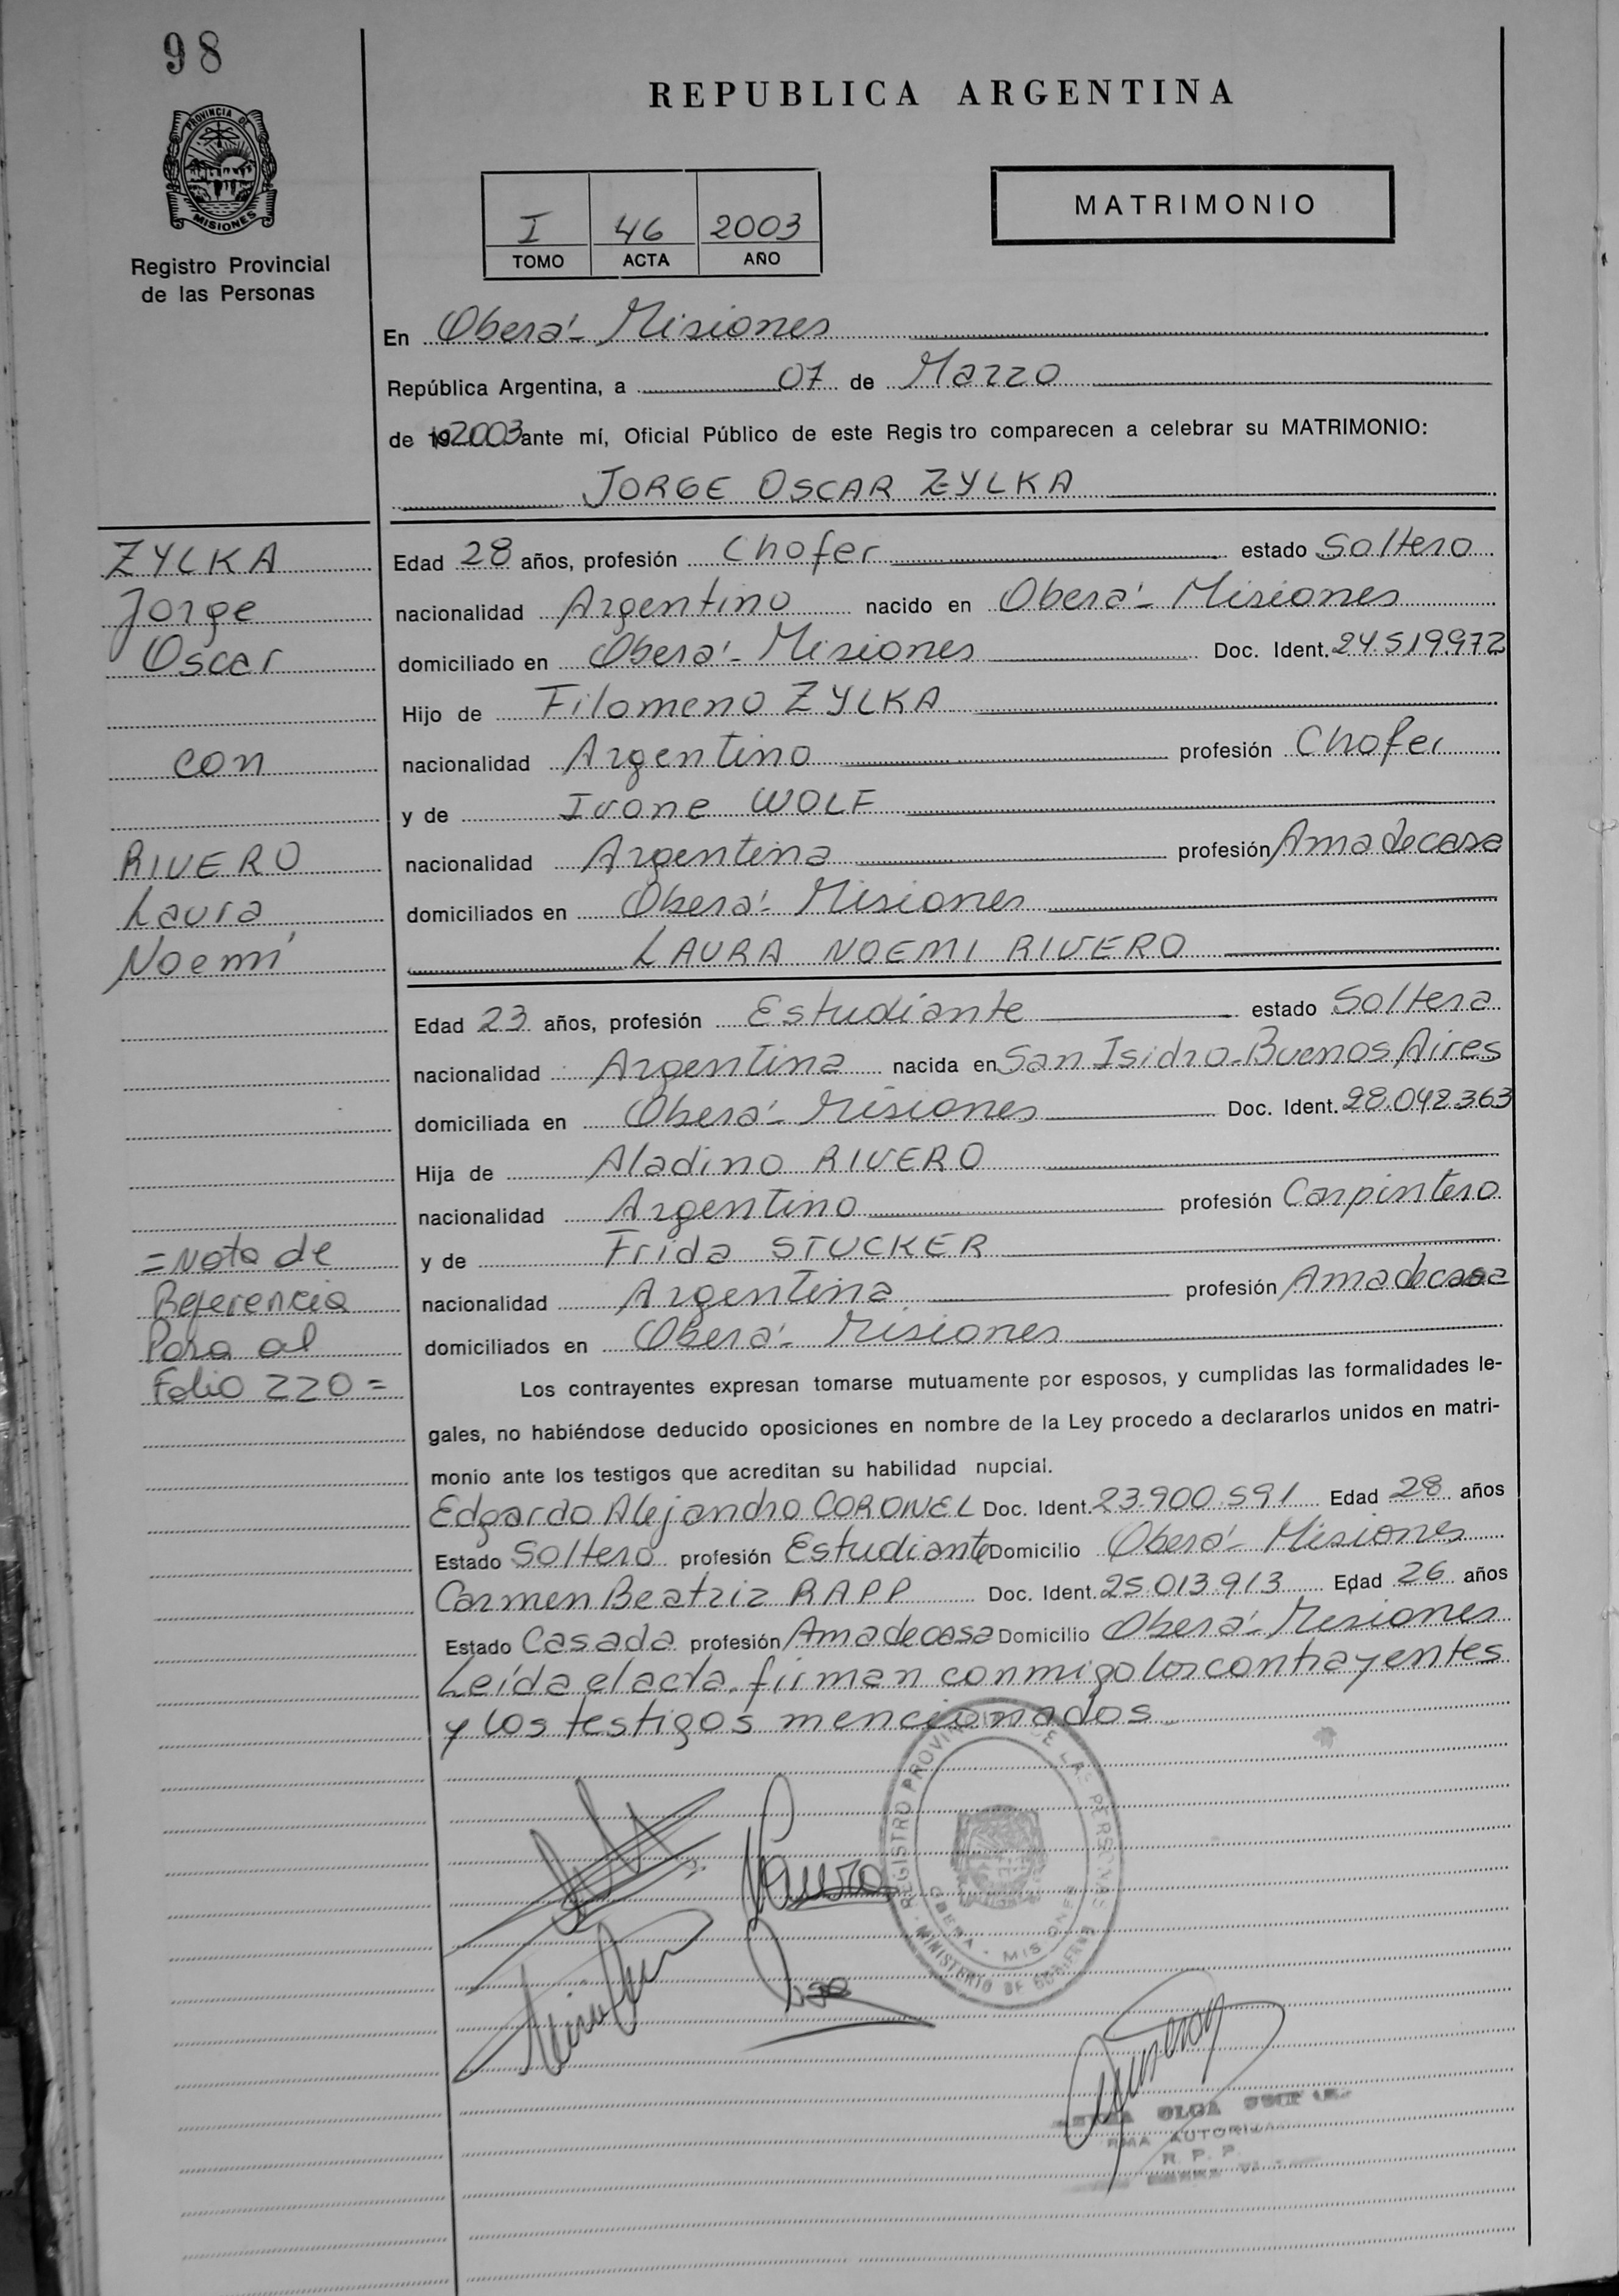 98
REPUBLICA ARGENTINA
PROVINCIA DE
MISIONES
Registro Provincial
de las Personas
I 46 2003
TOMO ACTA AÑO
MATRIMONIO
En Oberá - Misiones
República Argentina, a 07 de Marzo
de 19 2003 ante mí, Oficial Público de este Regis tro comparecen a celebrar su MATRIMONIO:
JORGE OSCAR ZYLKA
ZYLKA
Jorge
Oscar
con
RIVERO
Laura
Noemí
= Nota de
Referencia
Para al
Folio 220 =
Edad 28 años, profesión Chofer estado Soltero
nacionalidad Argentino nacido en Oberá - Misiones
domiciliado en Oberá - Misiones Doc. Ident. 24.519.972
Hijo de Filomeno ZYLKA
nacionalidad Argentino profesión Chofer
y de Ivone WOLF
nacionalidad Argentina profesión Amadecasa
domiciliados en Oberá - Misiones
LAURA NOEMI RIVERO
Edad 23 años, profesión Estudiante estado Soltera
nacionalidad Argentina nacida en San Isidro - Buenos Aires
domiciliada en Oberá - Misiones Doc. Ident. 28.042.363
Hija de Aladino RIVERO
nacionalidad Argentino profesión Carpintero
y de Frida STUCKER
nacionalidad Argentina profesión Amadecasa
domiciliados en Oberá - Misiones
Los contrayentes expresan tomarse mutuamente por esposos, y cumplidas las formalidades le-
gales, no habiéndose deducido oposiciones en nombre de la Ley procedo a declararlos unidos en matri-
monio ante los testigos que acreditan su habilidad nupcial.
Edgardo Alejandro CORONEL Doc. Ident. 23.900.591 Edad 28 años
Estado Soltero profesión Estudiante Domicilio Oberá - Misiones
Carmen Beatriz RAPP Doc. Ident. 25.013.913 Edad 26 años
Estado Casada profesión Amadecasa Domicilio Oberá - Misiones
Leída el acta, firman conmigo los contrayentes
y los testigos mencionados
REGISTRO PROVINCIAL DE LAS PERSONAS
OBERA - MISIONES
MINISTERIO DE GOBIERNO
Laura
OLGA
AUTORIZA
R. P. P.